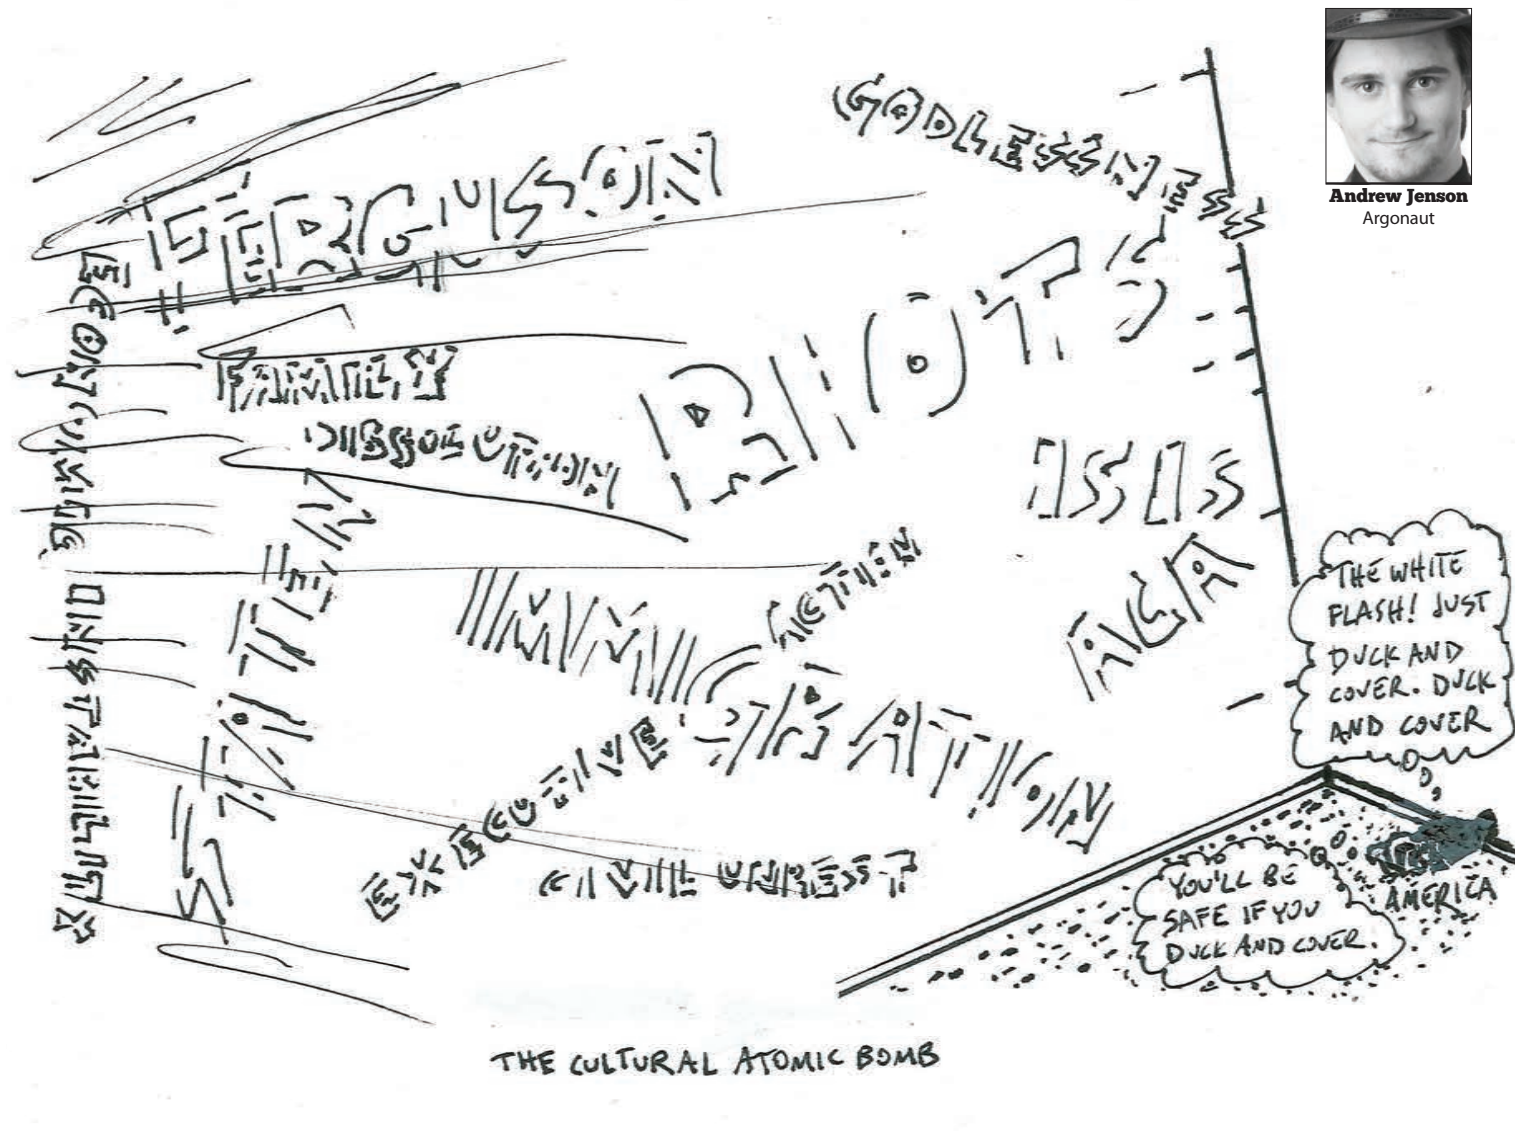 Andrew Jenson
Argonaut
GODLESSNESS
FERGUSON
RIOTS
ECONOMIC INSTABILITY
FAMILY
DISSOLUTION
ISIS
ACA
IMMIGRATION
EXECUTIVE ACTION
CIVIL UNREST
THE WHITE
FLASH! JUST
DUCK AND
COVER. DUCK
AND COVER
YOU'LL BE
SAFE IF YOU
DUCK AND COVER.
AMERICA
THE CULTURAL ATOMIC BOMB